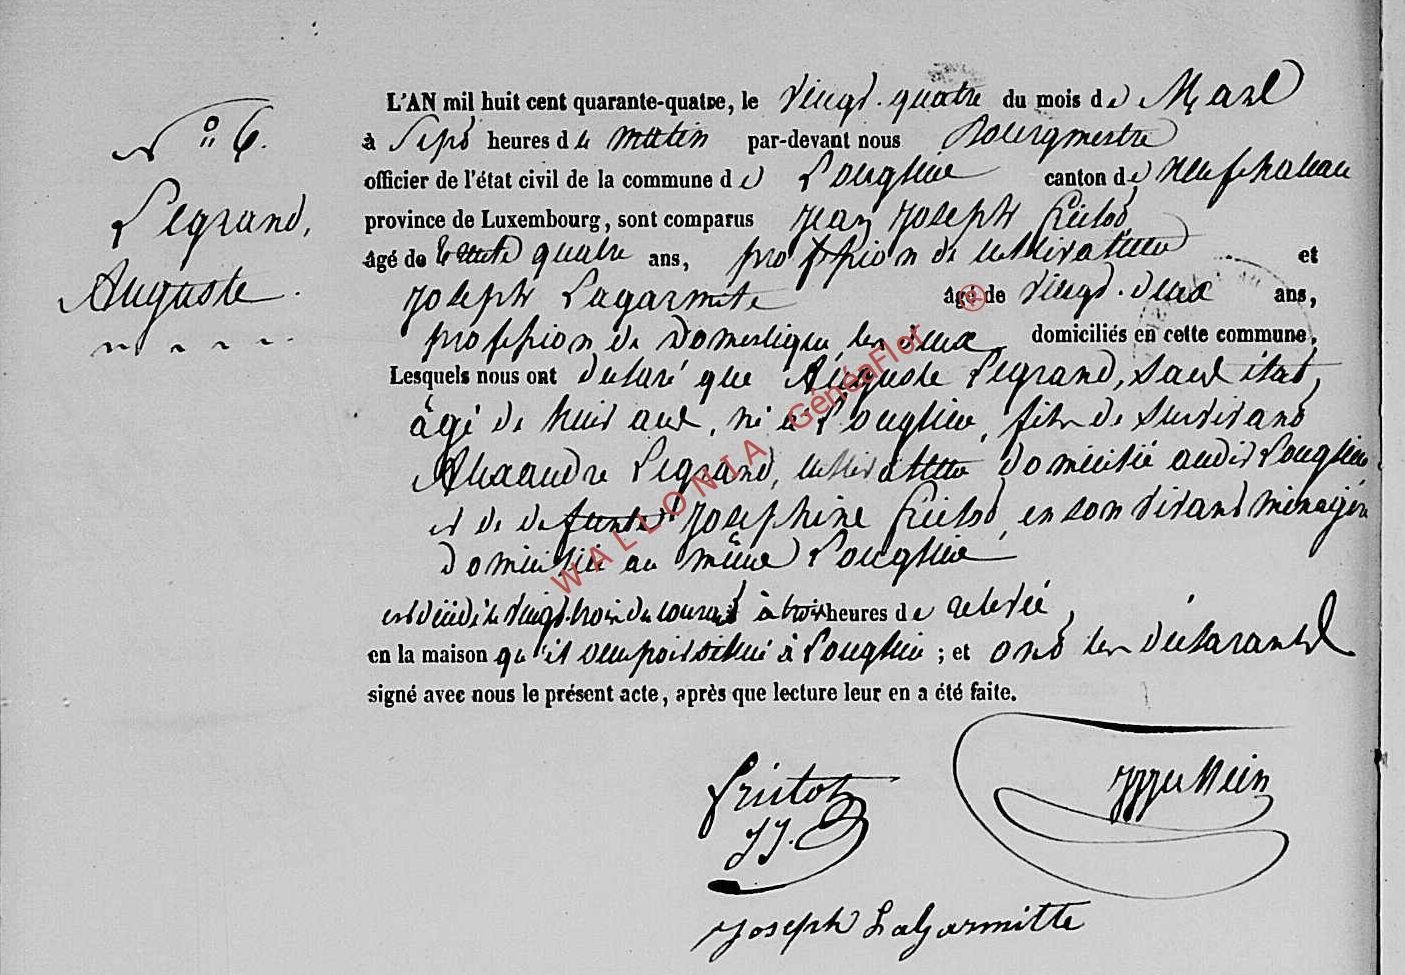 N° 6.
Legrand,
Auguste.
L'AN mil huit cent quarante-quatre, le vingt-quatre du mois de Mars
à Sept heures du matin par-devant nous Bourgmestre
officier de l'état civil de la commune de Longlier canton de Neufchateau
province de Luxembourg, sont comparus Jean Joseph
âgé de trente quatre ans, profession de cultivateur et
Joseph Lagarmite âgé de vingt-deux ans,
profession de domestique, les deux domiciliés en cette commune,
Lesquels nous ont déclaré que Auguste Legrand, sans état,
âgé de huit ans, né à Longlier, fils de survivant
Alexandre Legrand, cultivateur domicilié audit Longlier
et de defunte Josephine en son vivant ménagère
domiciliée au même Longlier
est décédé le vingt-trois du courant à trois heures de relevée,
en la maison qu'il occupait située à Longlier ; et ont les déclarants
signé avec nous le présent acte, après que lecture leur en a été faite.
JJ.
Joseph LaGarmitte
WALLONIA GénéaFlor ®